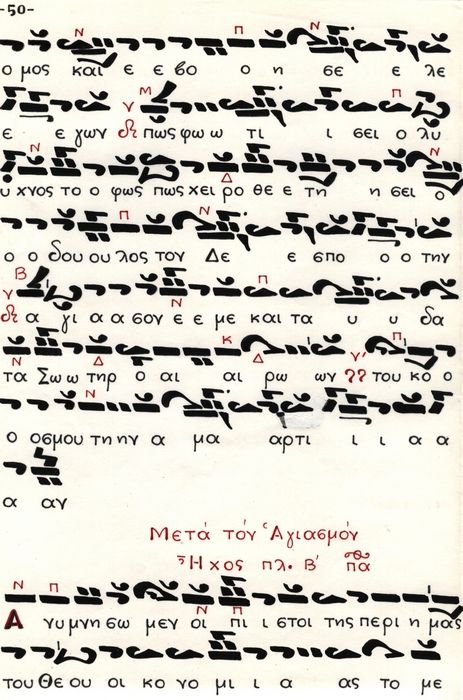 -50-
ο μος και ε ε βο ο η σε ε λε
ε ε χων πως φω ω τι ι σει ο λυ
υ χνος το ο φως πως χει ρο θε ε τη η σει ο
ο ο δου ου λος τον Δε ε ε σπο ο ο την
α γι α α σον ε ε με και τα υ υ δα
τα Σω ω τηρ ο αι αι ρω ων του κο ο
ο οσμου τη ην α μα αρτι ι ι α α
α αν
Μετά τόν Ἁγιασμόν
Ἦχος πλ. Β' πα
Α νυμνη σω μεν οι πι ι στοι της περι η μας
του Θε ου οι κο νο μι ι α ας το με